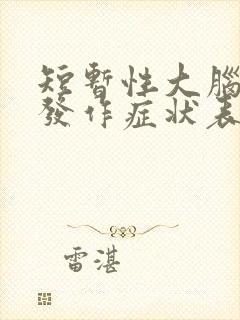 短暫性大腦
發作症狀表
雷湛